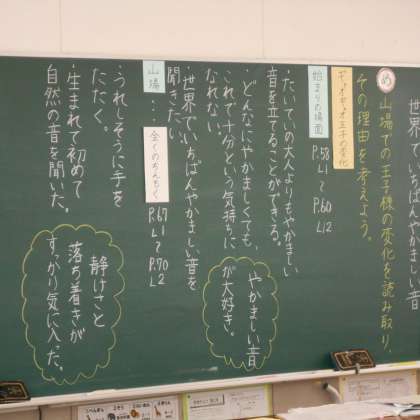 世界でいちばんやかましい音
め 山場での王子様の変化を読み取り、
その理由を考えよう。
ギャオギャオ王子の変化
始まりの場面
P.58
L1
〜
P.60
L12
・たいていの大人よりもやかましい
音を立てることができる。
・どんなにやかましくても、
これで十分という気持ちに
なれない。
・世界でいちばんやかましい音を
聞きたい。
やかましい音
が大好き。
山場
全くのちんもく
P.67
L1
〜
P.70
L2
・うれしそうに手を
たたく。
・生まれて初めて
自然の音を聞いた。
静けさと
落ち着きが
すっかり気に入った。